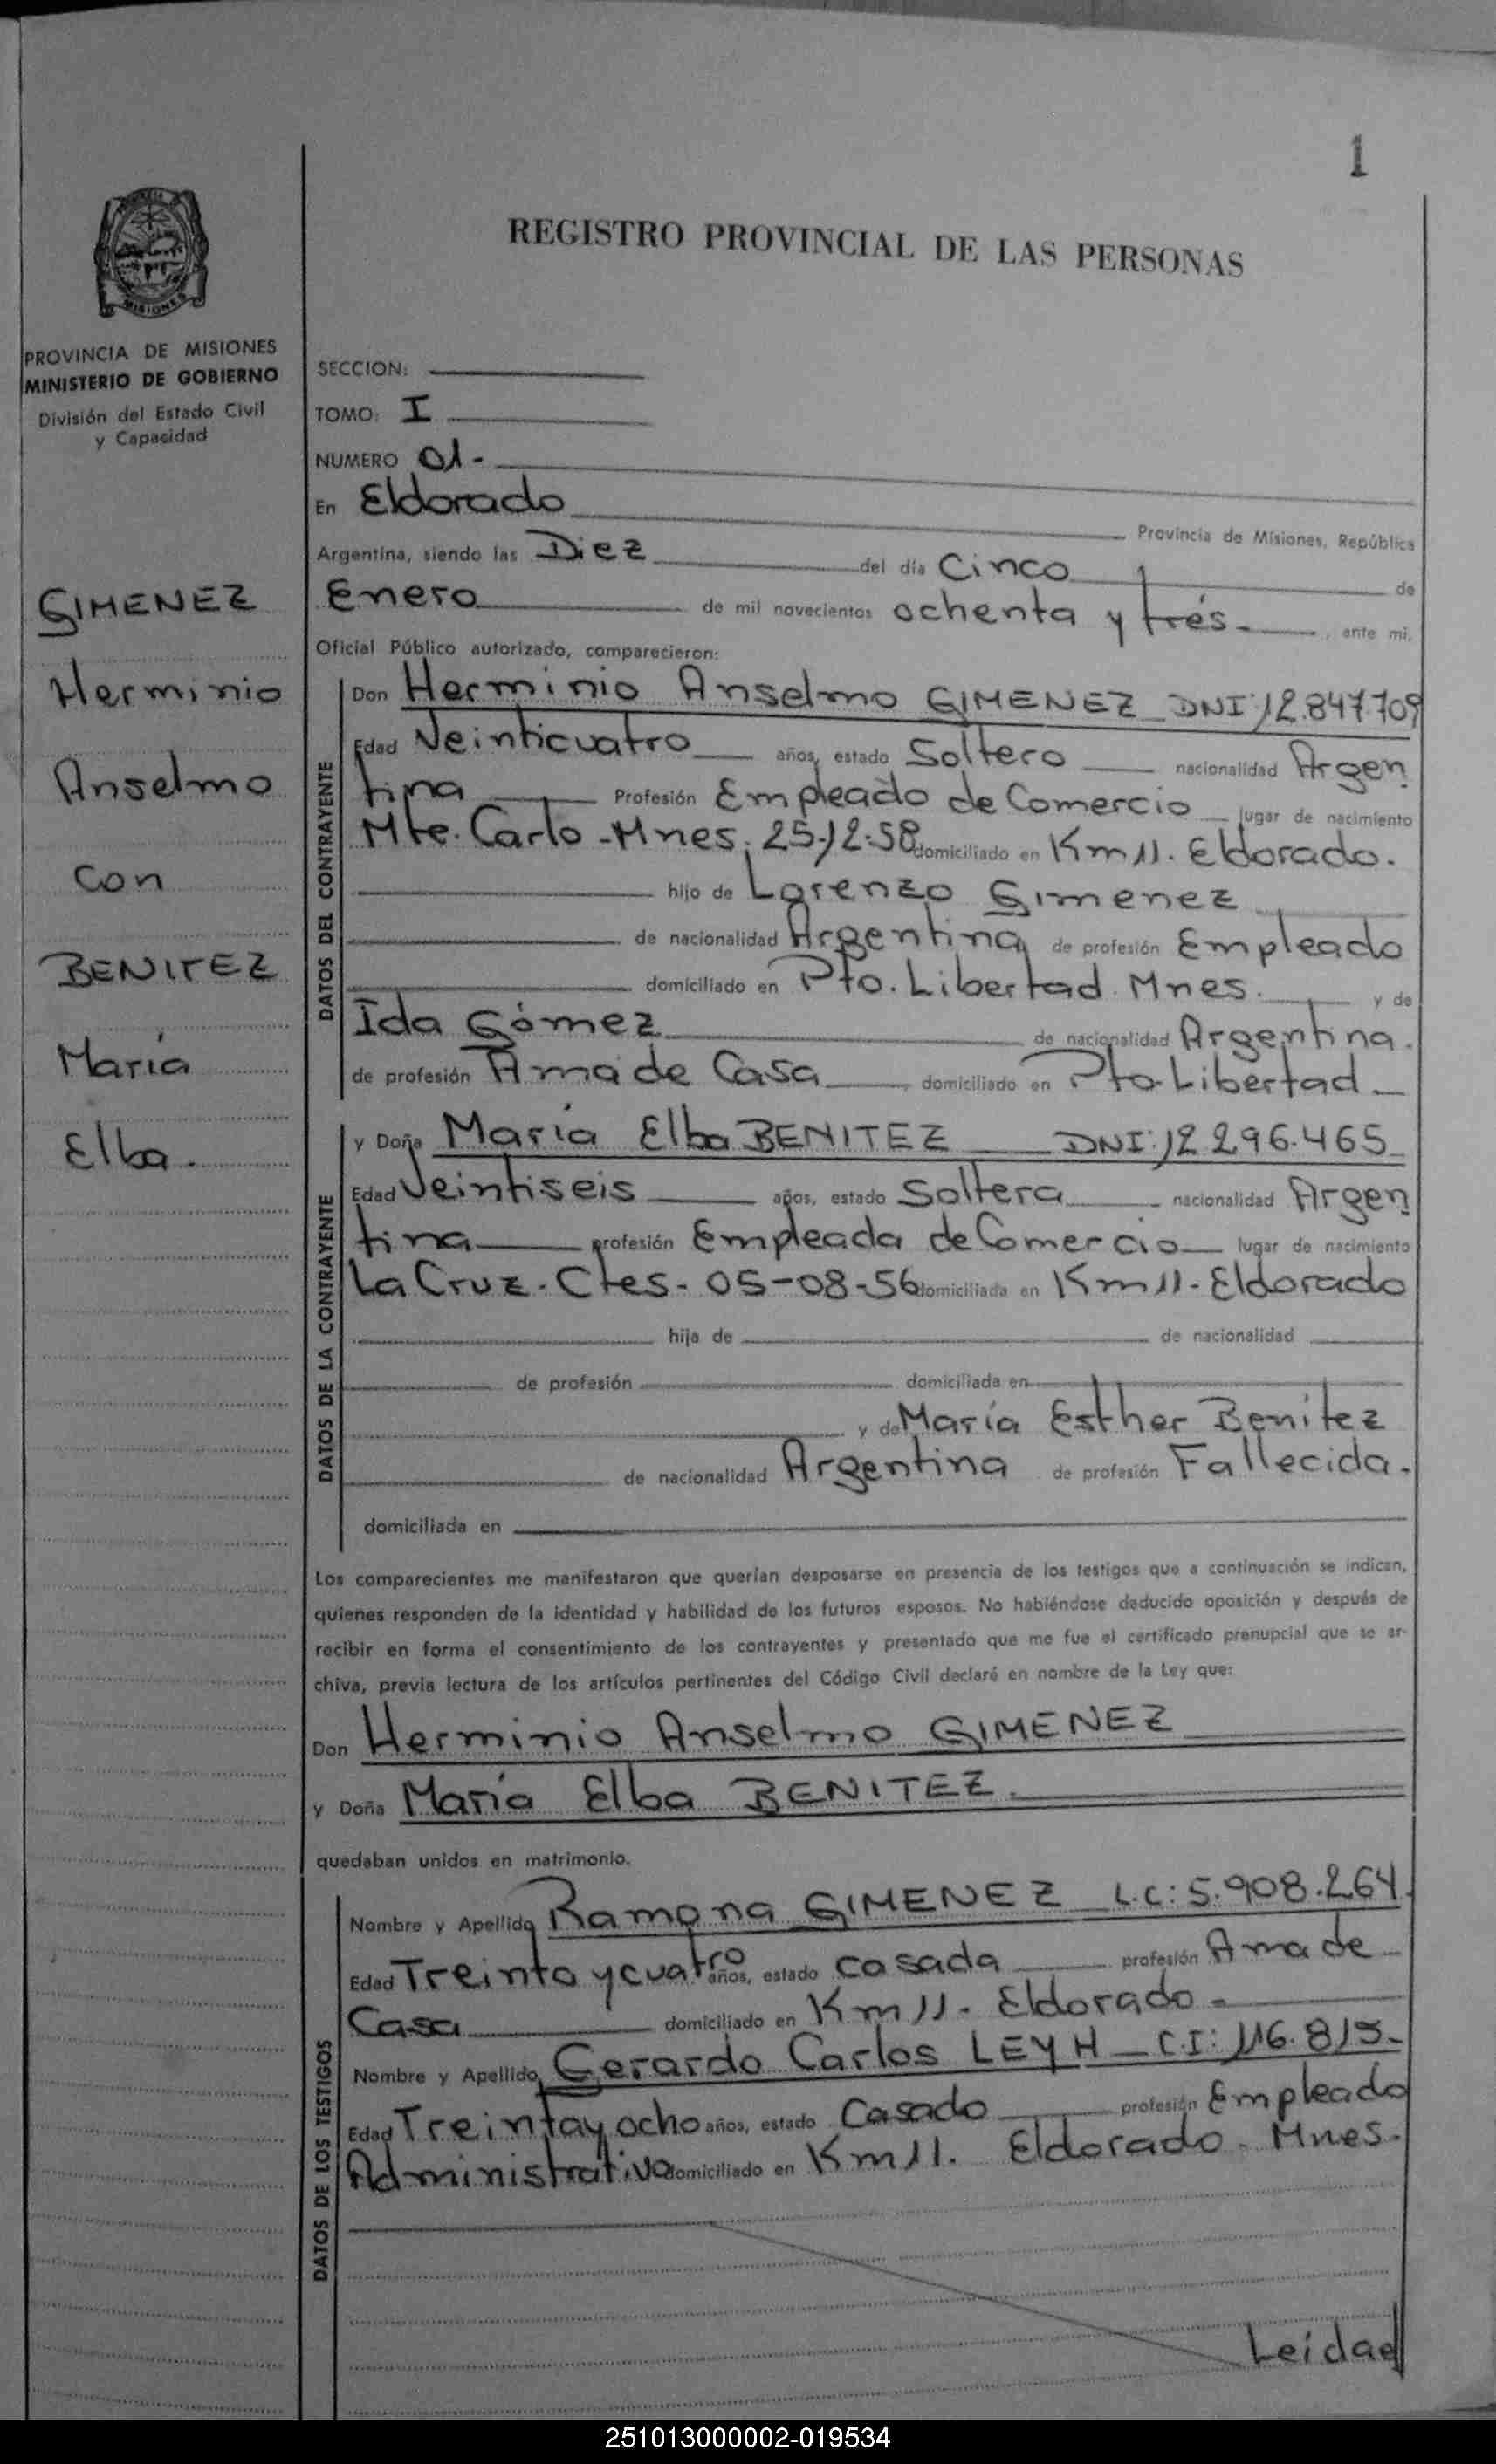 1
REGISTRO PROVINCIAL DE LAS PERSONAS
MISIONES
PROVINCIA DE MISIONES
MINISTERIO DE GOBIERNO
División del Estado Civil
y Capacidad
GIMENEZ
Herminio
Anselmo
con
BENITEZ
María
Elba.
SECCION:
TOMO: I
NUMERO 01-
En Eldorado Provincia de Misiones, República
Argentina, siendo las Diez del día Cinco de
Enero de mil novecientos ochenta y trés- , ante mi,
Oficial Público autorizado, comparecieron:
DATOS DEL CONTRAYENTE
Don Herminio Anselmo GIMENEZ DNI:12.847.709
Edad Veinticuatro años, estado Soltero nacionalidad Argen
tina Profesión Empleado de Comercio lugar de nacimiento
Mte. Carlo-Mnes. 25-12-58 domiciliado en Km 11. Eldorado.
hijo de Lorenzo Gimenez
de nacionalidad Argentina de profesión Empleado
domiciliado en Pto. Libertad. Mnes. y de
Ida Gómez de nacionalidad Argentina.
de profesión Ama de Casa domiciliado en Pto-Libertad
DATOS DE LA CONTRAYENTE
y Doña María Elba BENITEZ DNI:12.296.465
Edad Veintiseis años, estado Soltera nacionalidad Argen
tina profesión Empleada de Comercio lugar de nacimiento
La Cruz-Ctes-05-08-56 domiciliada en Km 11-Eldorado
hija de de nacionalidad
de profesión domiciliada en
y de María Esther Benitez
de nacionalidad Argentina de profesión Fallecida.
domiciliada en
Los comparecientes me manifestaron que querían desposarse en presencia de los testigos que a continuación se indican,
quienes responden de la identidad y habilidad de los futuros esposos. No habiéndose deducido oposición y después de
recibir en forma el consentimiento de los contrayentes y presentado que me fue el certificado prenupcial que se ar-
chiva, previa lectura de los artículos pertinentes del Código Civil declaré en nombre de la Ley que:
Don Herminio Anselmo GIMENEZ
y Doña María Elba BENITEZ.
quedaban unidos en matrimonio.
DATOS DE LOS TESTIGOS
Nombre y Apellido Ramona GIMENEZ L.C: 5.908.264.
Edad Treinta y cuatro años, estado casada profesión Ama de
Casa domiciliado en Km 11- Eldorado-
Nombre y Apellido Gerardo Carlos LEYH - C.I: 116.815-
Edad Treinta y ocho años, estado Casado profesión Empleado
Administrativo domiciliado en Km 11. Eldorado. Mnes.
Leida
251013000002-019534